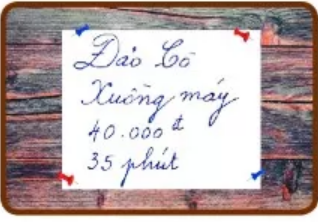 Đảo Cò
Xuồng máy
40.000đ
35 phút